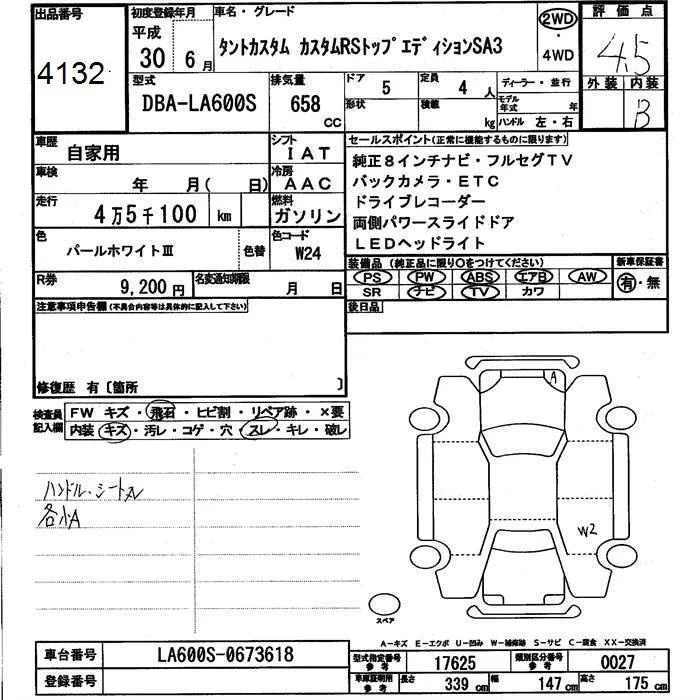 出品番号 初度登録年月 車名・グレード 2WD 評価点
4132 平成 30 6月 タントカスタム カスタムRSトップ エディションSA3 4WD 4.5
型式 排気量 ドア 5 定員 4人 ディーラー・並行 外装 内装
DBA-LA600S 658 CC 形状 積載 kg モデル年式 年 ハンドル 左・右 B
車歴 自家用 シフト IAT
車検 年 月( 日) 冷房 AAC
走行 4万5千100 km 燃料 ガソリン
色 パールホワイトⅢ 色替 色コード W24
R券 9,200円 名変通知期限 月 日
注意事項申告欄(不具合内容等は具体的に記入して下さい)
修復歴 有〔箇所 〕
セールスポイント(正常に機能するものに限ります)
純正8インチナビ・フルセグTV
バックカメラ・ETC
ドライブレコーダー
両側パワースライドドア
LEDヘッドライト
装備品(純正品に限り○をつけてください) 新車保証書
PS PW ABS エアB AW 有・無
SR ナビ TV カワ
後日品
検査員記入欄 FW キズ・飛石・ヒビ割・リペア跡・×要
内装 キズ・汚レ・コゲ・穴・スレ・キレ・破レ
ハンドル・シートスレ
各小A
A
W2
スペア
A-キズ E-エクボ U-凹み W-補修跡 S-サビ C-腐食 XX-交換済
車台番号 LA600S-0673618
登録番号
型式指定番号 参考 17625 類別区分番号 参考 0027
車庫証明用 参考 長さ 339cm 幅 147cm 高さ 175cm